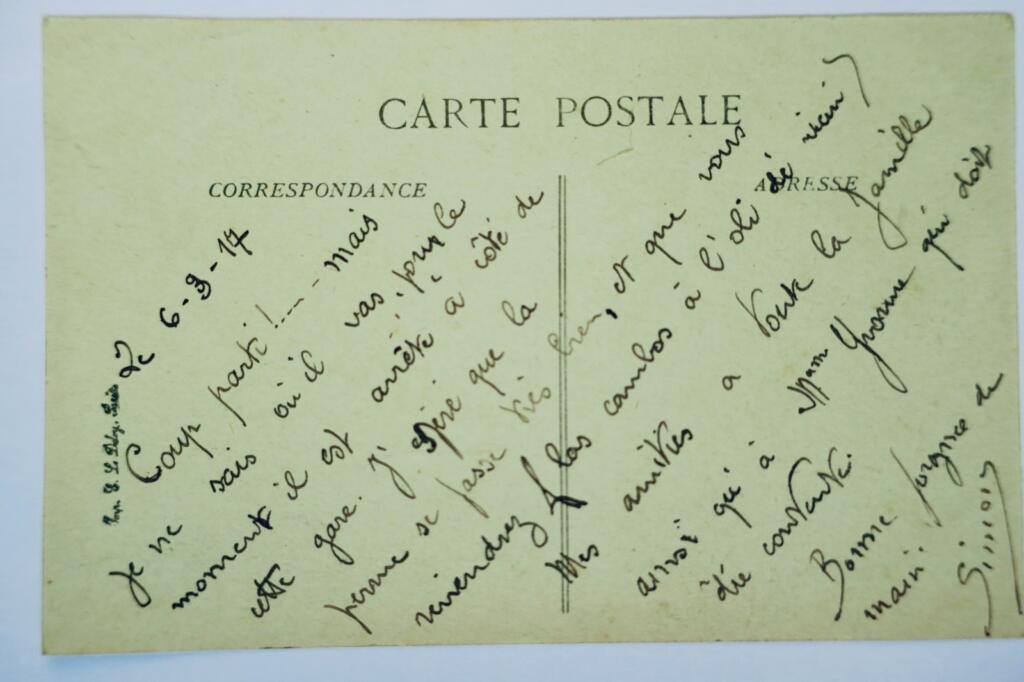 CARTE POSTALE
CORRESPONDANCE
ADRESSE
Le 6-3-17
Coup parti! --- mais
Je ne sais où il vas, pour le
moment il est arrêté à côté de
cette gare. J'espère que la
perme se passe très bien, et que vous
reviendrez
Mes amitiés a toute la famille
ainsi qu'à Mam Yvonne qui doit
être contente.
Bonne poignée de
main.